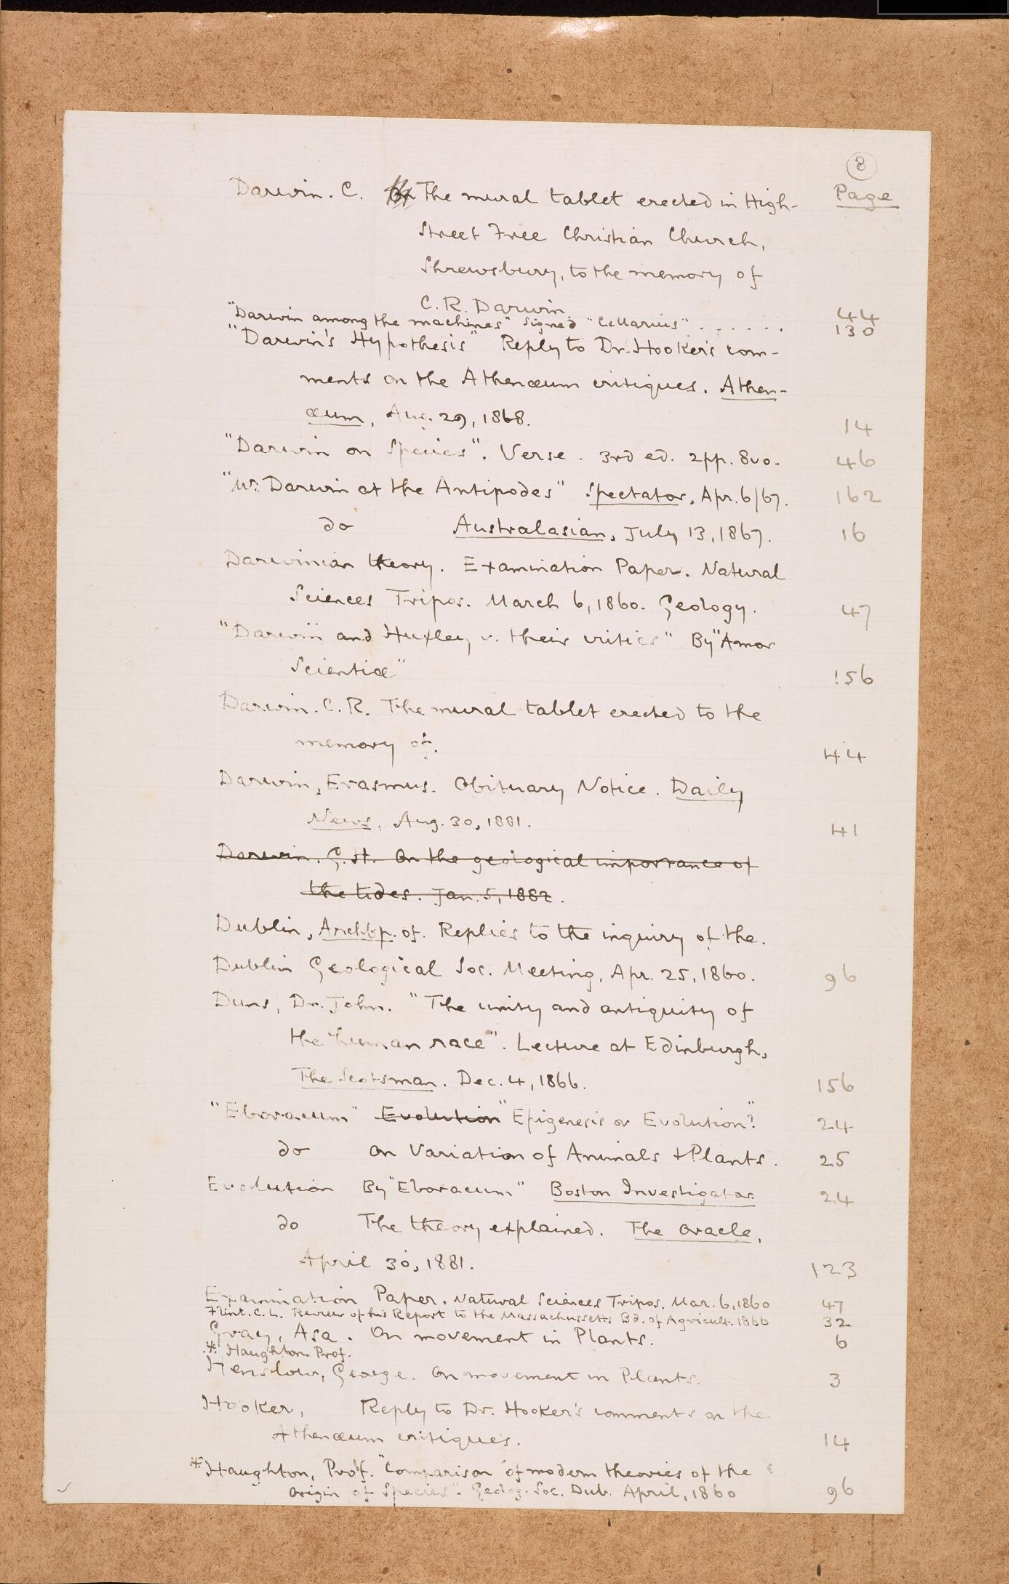 8
Darwin. C. The mural tablet erected in High- Page
Street Free Christian Church,
Shrewsbury, to the memory of
C. R. Darwin. 44
"Darwin among the machines" signed "Cellarius" . . . . . . 130
"Darwin's Hypothesis" Reply to Dr. Hooker's com-
ments on the Athenæum critiques. Athen-
æum, Aug. 29, 1868. 14
"Darwin on Species". Verse. 3rd ed. 2pp. 8vo. 46
"Mr. Darwin at the Antipodes" Spectator, Apr. 6/67. 162
do Australasian, July 13, 1867. 16
Darwinian theory. Examination Paper. Natural
Sciences Tripos. March 6, 1860. Geology. 47
"Darwin and Huxley v. their critics" By "Amor
Scientiæ" 156
Darwin. C. R. The mural tablet erected to the
memory of. 44
Darwin, Erasmus. Obituary Notice. Daily
News, Aug. 30, 1881. 41
Darwin, G. H. On the geological importance of
the tides. Jan. 5, 1882.
Dublin, Archbp. of. Replies to the inquiry of the.
Dublin Geological Soc. Meeting, Apr. 25, 1860. 96
Duns, Dr. John. "The unity and antiquity of
the "human race". Lecture at Edinburgh,
The Scotsman. Dec. 4, 1866. 156
"Eboracum" Evolution "Epigenesis or Evolution"? 24
do On Variation of Animals + Plants. 25
Evolution By "Eboracum" Boston Investigator 24
do The theory explained. The Oracle,
April 30, 1881. 123
Examination Paper. Natural Sciences Tripos. Mar. 6, 1860 47
Flint. C. L. Review of his Report to the Massachussetts Bd. of Agricult. 1866 32
Gray, Asa. On movement in Plants. 6
* Haughton. Prof.
Henslow, George. On movement in Plants. 3
Hooker, Reply to Dr. Hooker's comments on the
Athenæum critiques. 14
* Haughton, Prof. "Comparison of modern theories of the
origin of Species". Geolog. Soc. Dub. April, 1860 96